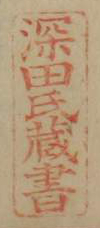 深田氏蔵書